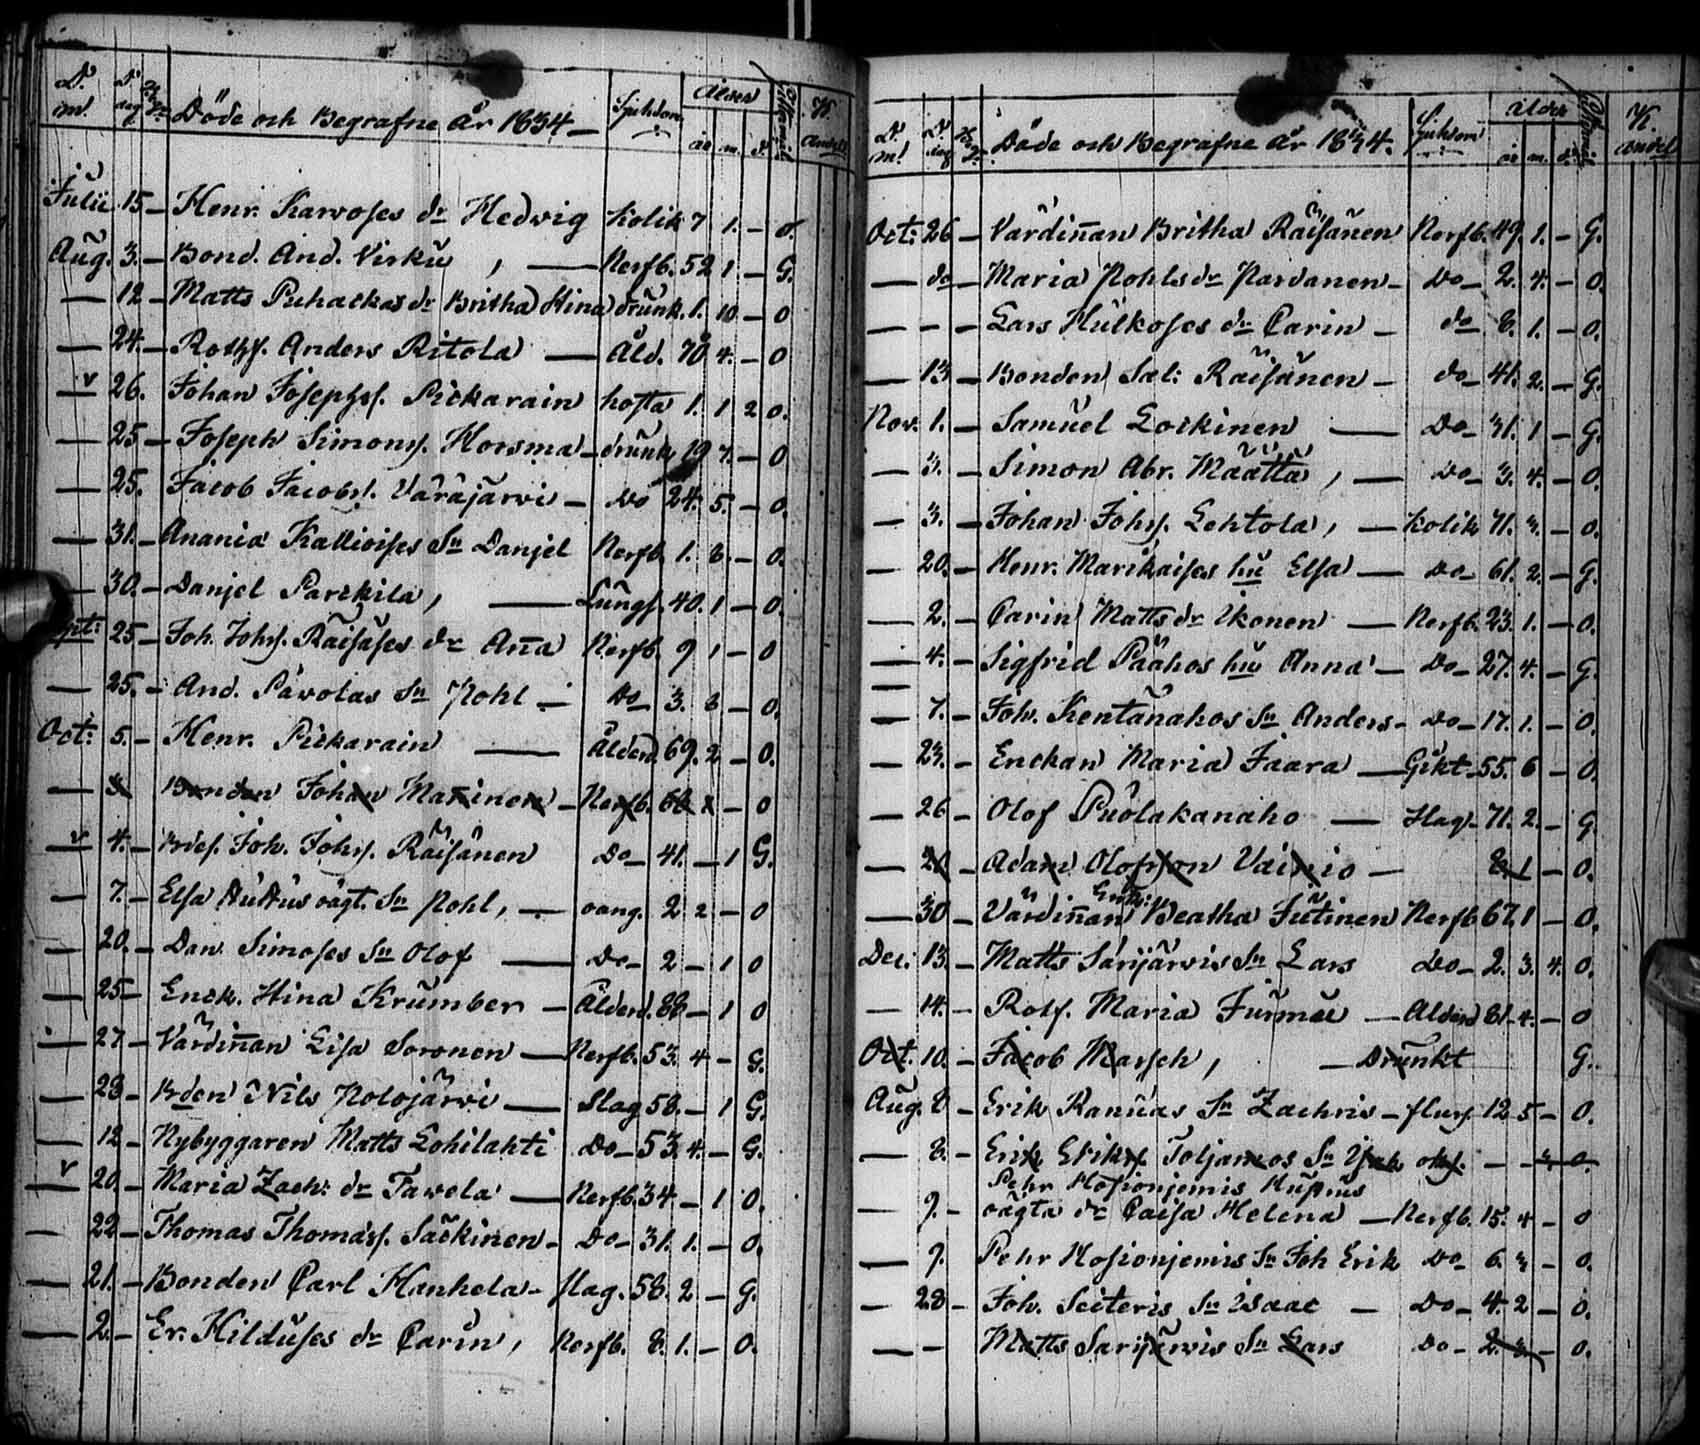 D. m. D. dag Döde och Begrafne År 1834 Sjukdom Ålder år m. d. K. andel
Julii 15 Henr. Karvoses dr Hedvig Kolik 7 1. – O.
Aug. 3. Bond. And. Virku, Nerfb. 52 1 – G.
12 Matts Puhackas dr Britha Stina drunk. 1. 10 – O
24. Rothf. Anders Ritola Åld. 70 4. – O
v 26. Johan Josephs. Pickarain hosta 1. 1 2 O.
25 Joseph Simons. Horsma drunk 19 7. – O
25. Jacob Jacobs. Väräjärvi Do 24. 5. – O.
31. Anania Kallioises Sn Danjel Nerfb. 1. 8. – O.
30. Danjel Parckila, Lungs. 40. 1 – O.
25 Joh. Johs. Räisäses dr Aña Nerfb. 9 1 – O
25. And. Pavolas Sn Pohl Do 3. 8 – O.
Oct: 5. Henr. Pickarain Ålderd. 69. 2 – O.
Bonden Johan Matinen Nerfb. – O
v 4. Bdes. Joh. Johs. Räisänen Do 41. – 1 G.
7. Elsa Huttus oägt. Sn Pohl, oang. 2 2 – O
20. Dan. Simoses Sn Olof Do 2 – 1 O
25 Enck. Stina Krumber Ålderd. 88 – 1 O
27 Värdiñan Lisa Soronen Nerfb. 53. 4 – G.
28 Bden Nils Polojärvi Slag 58. – 1 G.
12 Nybyggaren Matts Lohilahti Do 53. 4. – G.
v 20. Maria Zach: dr Tavela Nerfb. 34 – 1 O.
22 Thomas Thomass. Säckinen Do 31. 1. – O.
21. Bonden Carl Hanhela slag. 58. 2 – G.
2. Er. Hilduses dr Carin, Nerfb. 8. 1. – O.
D. m! D. dag Döde och Begrafne År 1834. Sjukdom Ålder år m. d. K. andel
Oct: 26 Värdiñan Britha Räisänen Nerfb. 49. 1. – G.
do Maria Pohls dr Pardanen Do 2. 4. – O.
– – Lars Hulkoses dr Carin do 8. 1. – O.
13 Bonden Sal: Räisänen do 41. 2. – G.
Nov. 1. Samuel Lockinen Do 31. 1 – G.
3. Simon Abr. Määttä, Do 3. 4. – O.
3. Johan Johs. Lehtola, Kolik 71. 3. – O.
20. Henr. Marikaises hu Elsa Do 61. 2. – G.
2. Carin Matts dr Ikonen Nerfb. 23. 1. – O.
4. Sigfrid Päähos hu Anna Do 27. 4. – G.
7. Joh. Kentänahos Sn Anders Do 17. 1. – O.
23. Enckan Maria Jaara Gikt 55. 6 – O.
26 Olof Puolakanaho Slag 71. 2. – G
Adam Olofsson Vainio 8. 1 – O.
Enk.
30 Värdiñan Beatha Jutinen Nerfb. 67. 1 – O.
Dec. 13. Matts Särijärvis Sn Lars Do 2. 3. 4. O.
14. Rotf. Maria Jurmu Ålderd 81. 4. – O
Oct. 10. Jacob Marsch, Drunkt G.
Aug. 8 Erik Ranuas Sn Zachris flusf. 12 5 – O.
8. Erik Eriks. Toljamos Sn Isak okf. – 3. O.
Pehr Hosionjemis Hupus
9. oägta dr Caisa Helena Nerfb. 15. 4 – O
9. Pehr Hosionjemis Sn Joh Erik Do 6. 3 – O.
28 Joh. Seiteris Sn Isaac Do 4. 2 – O.
– Matts Sarijärvis Sn Lars Do 2. 3. – O.